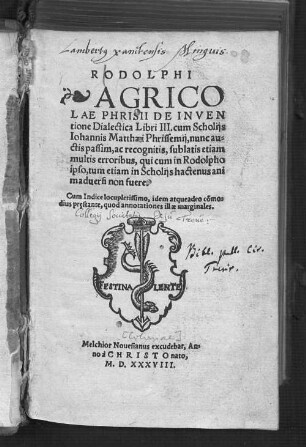 RODOLPHI
AGRICO
LAE PHRISII DE INVEN
tione Dialectica Libri III. cum Scholijs
Iohannis Matthæi Phrissemij, nunc au-
ctis passim, ac recognitis, sublatis etiam
multis erroribus, qui cum in Rodolpho
ipso, tum etiam in Scholijs hactenus ani
maduersi non fuere.
Cum Indice locupletissimo, idem atque adeo cōmo
dius præstante, quod annotationes illæ marginales.
Collegij Societatis Jesu Treuir.
Bibl. publ. Civ.
Trevir.
FESTINA LENTE
[Coloniae]
Melchior Nouesianus excudebat, An-
no à CHRISTO nato,
M. D. XXXVIII.